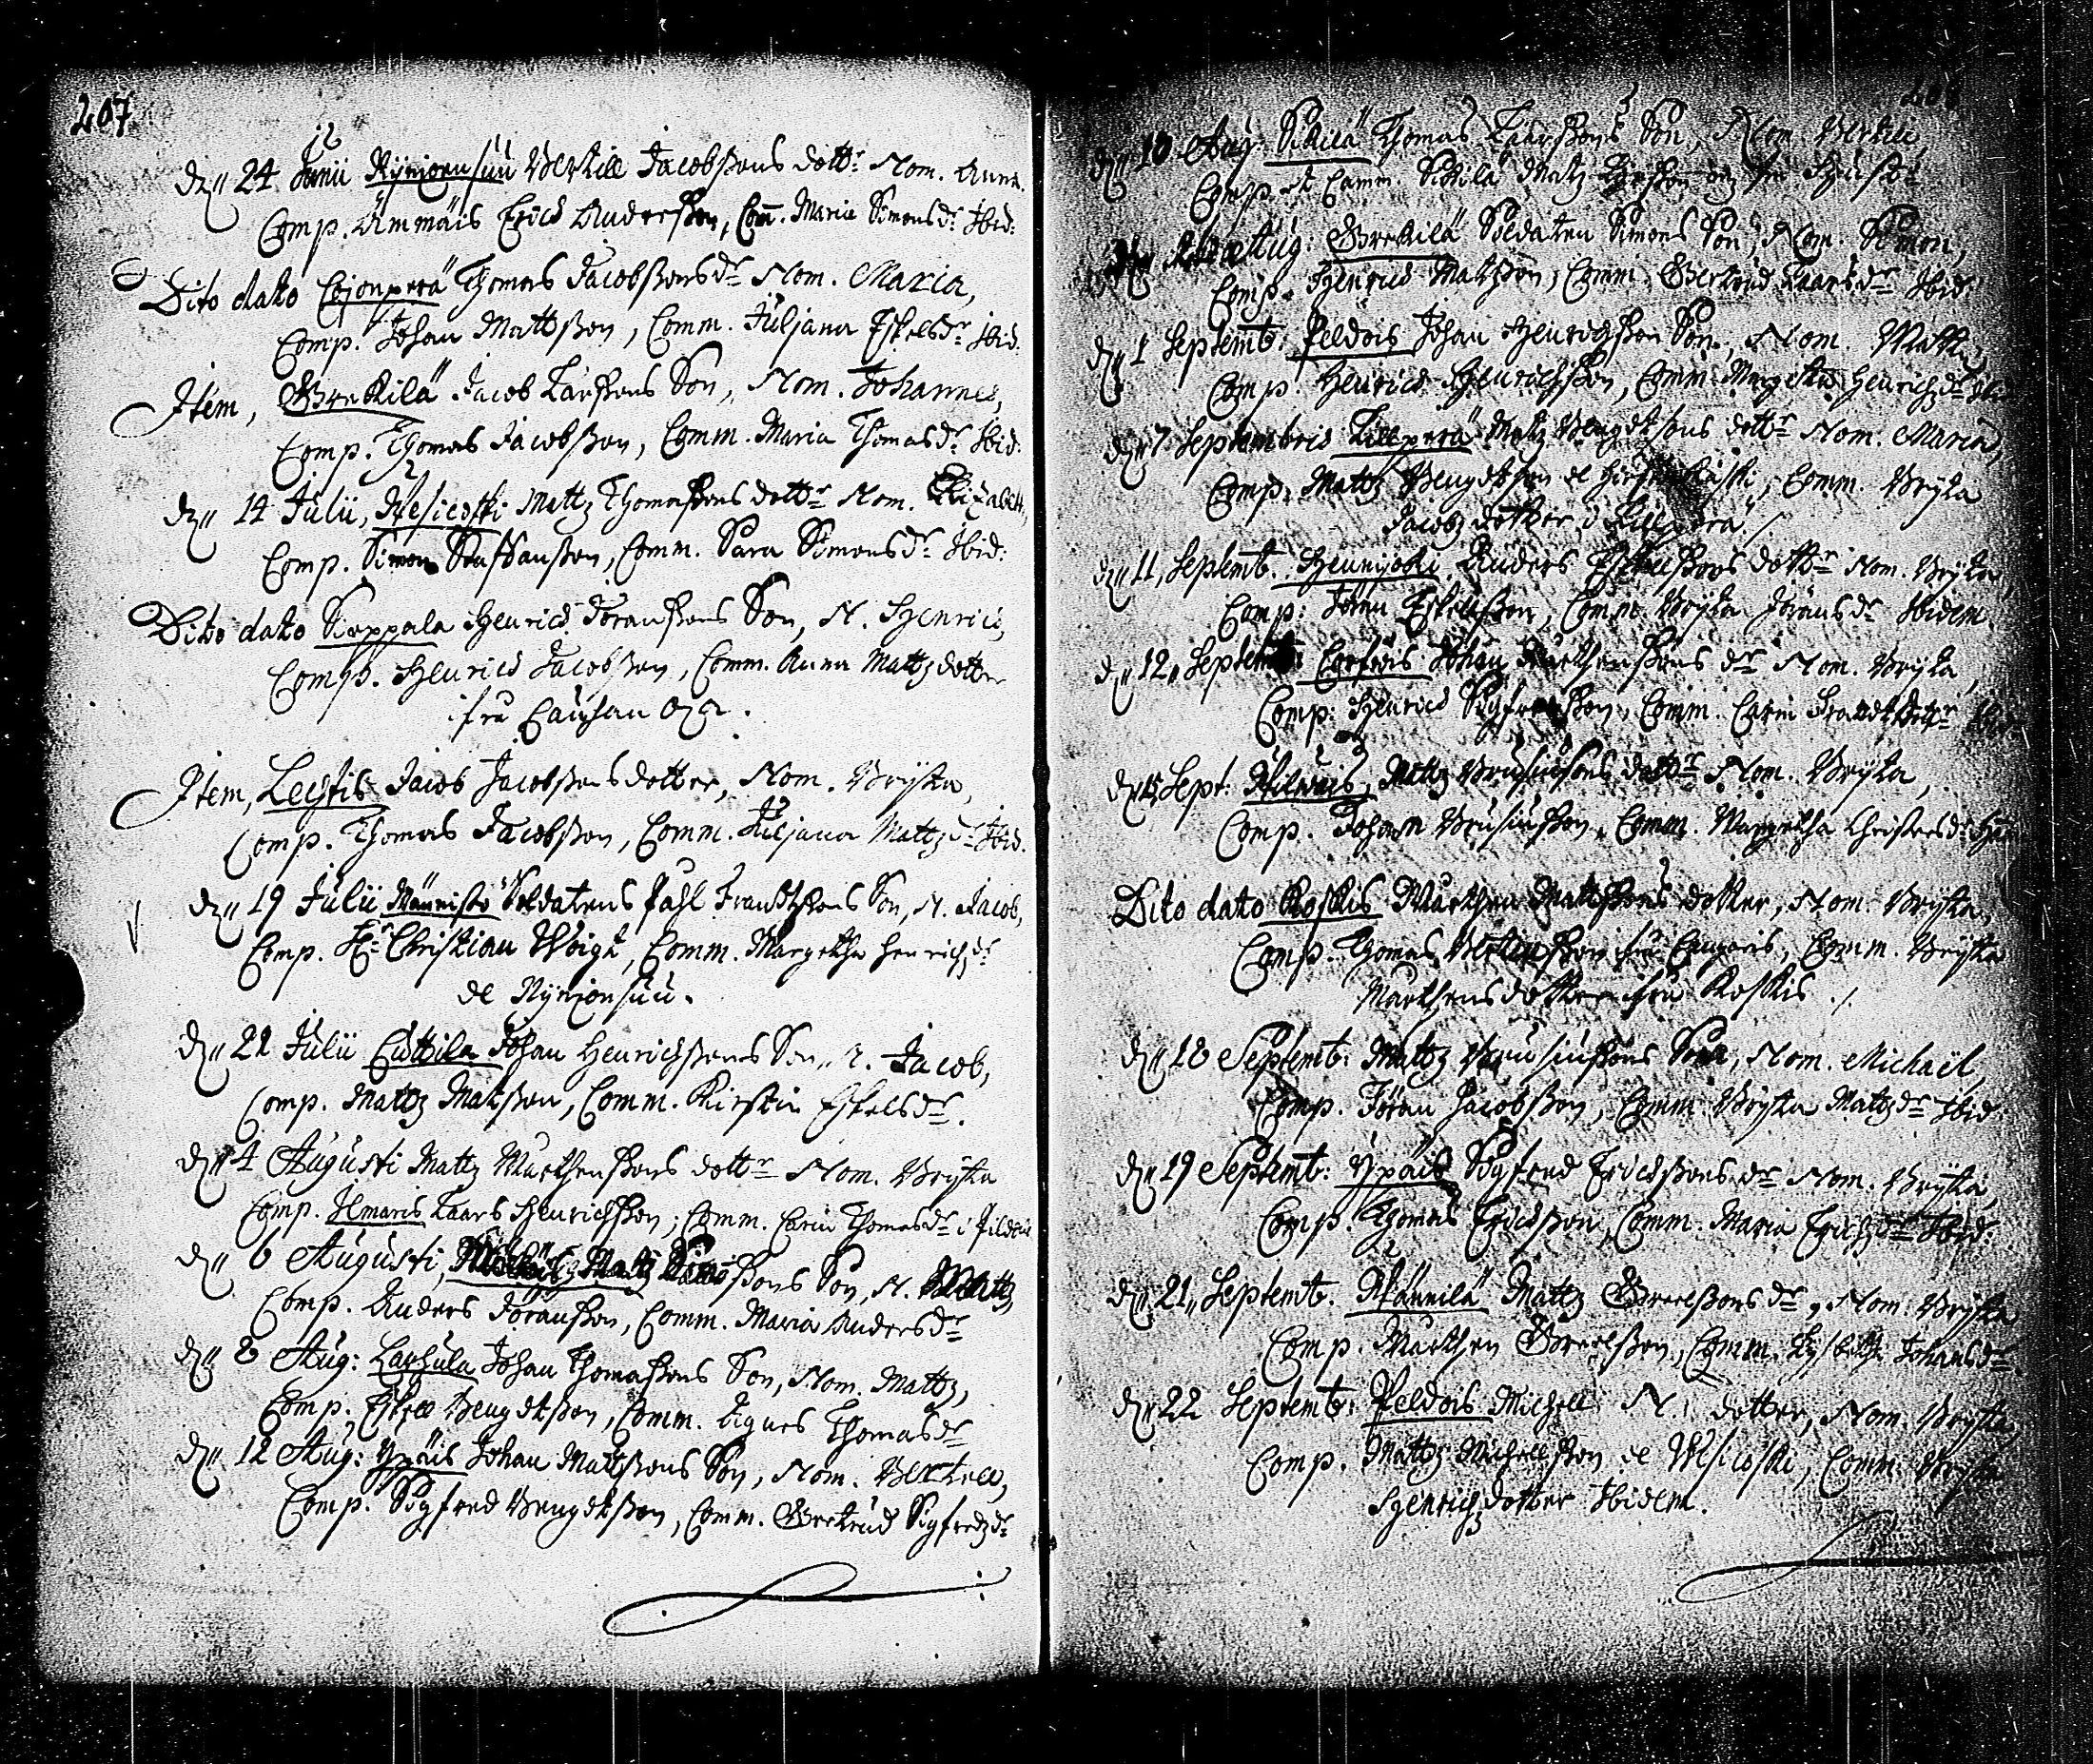 207
Den 24 Junii Rÿnjoensuu Bertill Jacobßons dottr Nom. Anna.
Comp. Ämmäis Erics Anderßon, Com. Maria Simonsdr Ibid:
Dito dato Cojonperä Thomas Jacobßonsdr Nom. Maria,
Comp. Johan Mattßon, Comm. Juljana Eskelsdr Ibid.
Item, Grekilä Jacob Larßons Son, Nom. Johannes,
Comp. Thomas Jacobßon, Comm. Maria Thomasdr Ibid.
Den 14 Julii, Wesicoski Mattz Thomaßons dottr Nom. Elizabeth,
Comp. Simon Staffanßon, Comm. Sara Simonsdr Ibid:
Dito dato Seppala Henrics Jöranßons Son, N. Henrics,
Comp. Henrics Jacobßon, Comm. Anna Mattzdotter
ifrå Cauhan oja.
Item, Lechtis Jacob Jacobßons dotter, Nom. Brÿta,
Comp. Thomas Jacobßon, Comm. Juljana Mattzdr Ibid.
Den 19 Julii Männistö Soldatens Pahl Frandßons Son, N. Jacob,
Comp. Hr Christian Woigt, Comm. Margetha Henrichzdr
de Rÿnjonsuu.
Den 21 Julii Cuttila Johan Henrichßons Son, N. Jacob,
Comp. Mattz Matßon, Comm. Kirstin Eskelsdr.
Den 4 Augusti Mattz Marthenßons dottr Nom. Brÿta
Comp. Ilmaris Laars Henrichßon, Comm. Carin Thomasdr i Pildois
Den 6 Augusti, Mattz Simoßons Son, N. Mattz,
Comp. Anders Jöranßon, Comm. Maria Andersdr
Den 8 Aug: Laghula Johan Thomaßons Son, Nom. Mattz,
Comp. Eskell Bengdtßon, Comm. Agnes Thomasdr
Den 12 Aug: Ypäis Johan Mattßons Son, Nom. Bertell,
Comp. Sigfred Bengdtßon, Comm. Gertrud Sigfredzdr
Den 18 Aug: Sikilä Thomas Larßons Son, Nom. Bertill,
Comp. et Comm. Sikilä Matz och hustr
Aug: Grekilä Soldaten Simons Son, Nom. Simon,
Comp. Henrics Matßon, Comm. Gertrud Laarsdr Ibid
Den 1 Septemb: Peldois Johan Henrichßon Son, Nom. Matt
Comp. Henrics Henrichßon, Comm. Margetha Henrichzdr
Den 7 Septembris Lillperä Matz Bengdtsons dottr Nom. Maria,
Comp. Mattz Bengdtßon de, Comm. Brÿta
Jacobz dotter i Lillperä.
Den 11, Septemb. Hennijoki Anders Eskellßons dottr Nom. Brÿta,
Comp: Jöran Eskelßon, Comm. Brÿta Jöransdr Ibidem
Den 12, Septemb: Corfois Johan Marthenßons dr Nom. Brÿta,
Comp: Henrics Sigfredßon, Comm. Carin
Den 15 Sept: Mattz Brusiusßons dottr Nom. Brÿta,
Comp. Johan Brusiusßon, Comm. Margetha Christersdr
Dito dato Koskis Marthen Mattßons dotter, Nom. Brÿta,
Comp. Thomas Bertillßon ifrå, Comm. Brÿta
Marthensdotter ifrå Koskis.
Den 18 Septemb: Mattz Brusiusßons Son, Nom. Michaël,
Comp. Jöran Jacobßon, Comm. Brÿta Mattzdr Ibid
Den 19 Septemb: Ypäis Sigfred Ericsßons dr Nom. Brÿta,
Comp. Thomas Ericsßon, Comm. Maria Erichzdr Ibid:
Den 21, Septemb. Männilä Mattz Grelßons dr, Nom: Brÿta
Comp. Marthen Grelßon, Comm. Lysbetha Johansdr
Den 22 Septemb: Peldois Michell N. dotter, Nom. Brÿta,
Comp. Mattz Michellßon de Wesicoski, Comm. Brÿta
Henrichzdotter Ibidem.